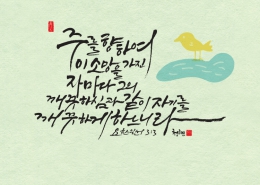 주를 향하여
이 소망을 가진
자마다 그의
깨끗하심과 같이 자기를
깨끗하게 하느니라
요한일서 3:3